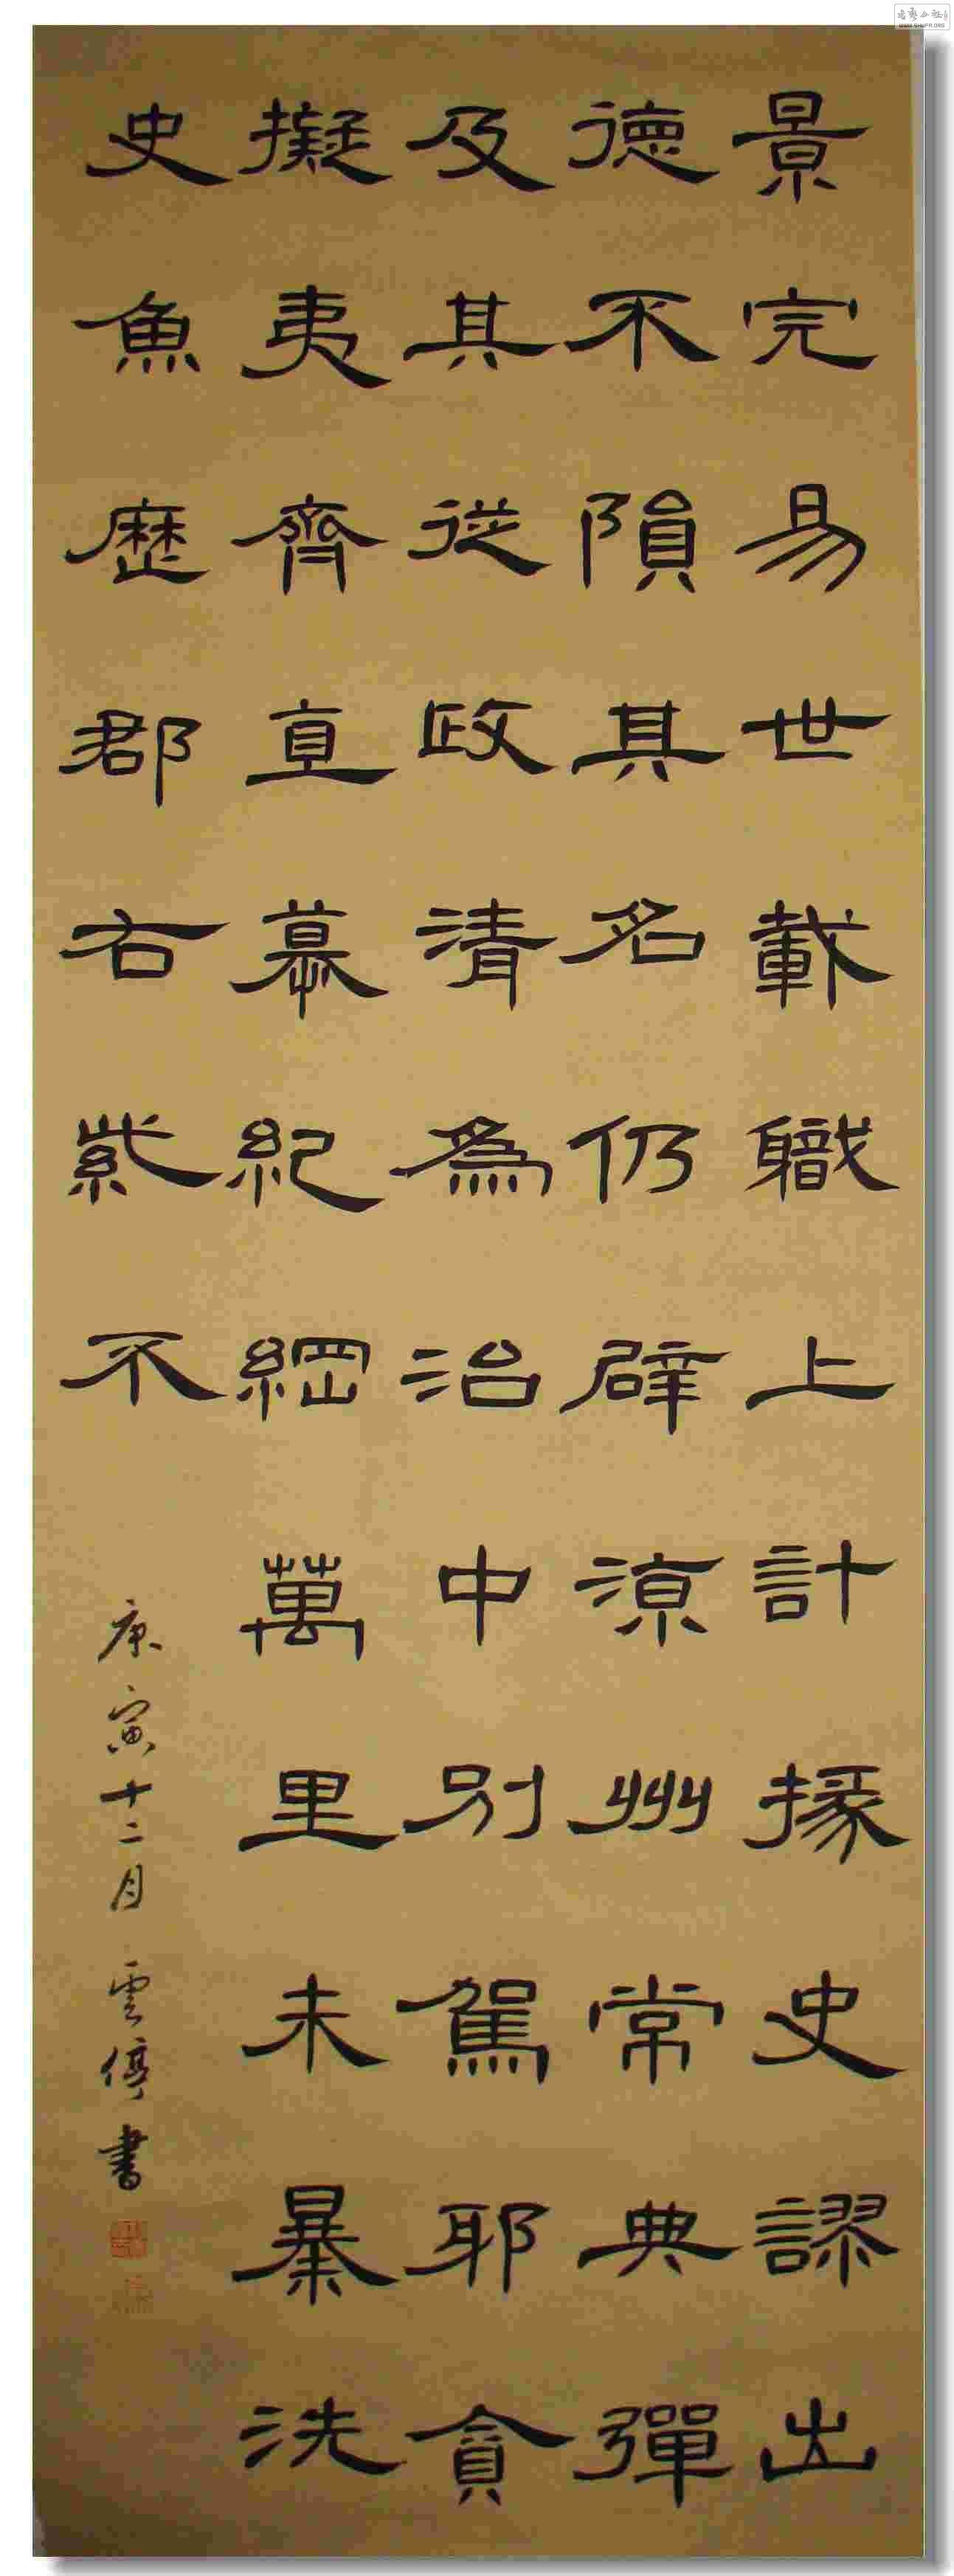 景完易世載職上計掾史謬出
德不隕其名仍辟涼州常典彈
及其從政清為治中別駕耶貪
擬夷齊直慕紀綱萬里未暴洗
史魚歷郡右紫不
庚寅十二月 雲停書
WWW.SHUFA.ORG